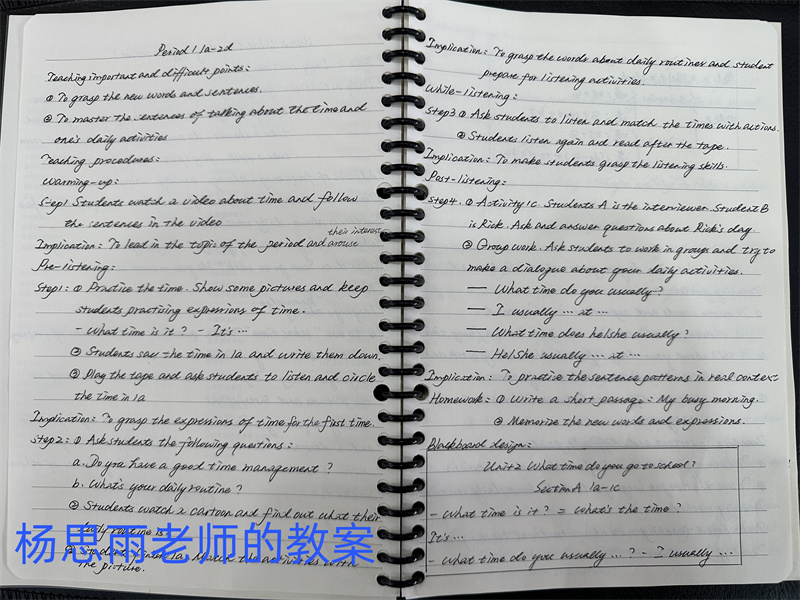 Period 1 1a-2d
Teaching important and difficult points:
① To grasp the new words and sentences.
② To master the sentences of talking about the time and
one's daily activities
Teaching procedures:
Warming-up:
Step1 Students watch a video about time and follow
the sentences in the video
their interest
Implication: To lead in the topic of the period and arouse
Pre-listening:
Step1: ① Practice the time. Show some pictures and keep
students practising expressions of time.
- What time is it? - It's ...
② Students say the time in 1a and write them down.
③ Play the tape and ask students to listen and circle
the time in 1a
Implication: To grasp the expressions of time for the first time.
Step2: ① Ask students the following questions:
a. Do you have a good time management?
b. What's your daily routine?
② Students watch a cartoon and find out what their
daily routine is.
③ Students finish 1a. Match the activities with
the picture.
杨思雨老师的教案
Implication: To grasp the words about daily routines and student
prepare for listening activities.
While-listening:
Step3 ① Ask students to listen and match the times with actions.
② Students listen again and read after the tape.
Implication: To make students grasp the listening skills.
Post-listening:
Step4. ① Activity 1c. Students A is the interviewer. Student B
is Rick. Ask and answer questions about Rick's day.
② Group work. Ask students to work in groups and try to
make a dialogue about your daily activities.
— What time do you usually?
— I usually ... at ...
— What time does he/she usually?
— He/She usually ... at ...
Implication: To practice the sentence patterns in real context
Homework: ① Write a short passage: My busy morning.
② Memorize the new words and expressions.
Blackboard design:
Unit2 What time do you go to school?
Section A 1a-1c
- What time is it? = What's the time?
It's ...
- What time do you usually ...? - I usually ...